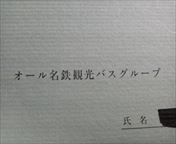 オール名鉄観光バスグループ
氏名